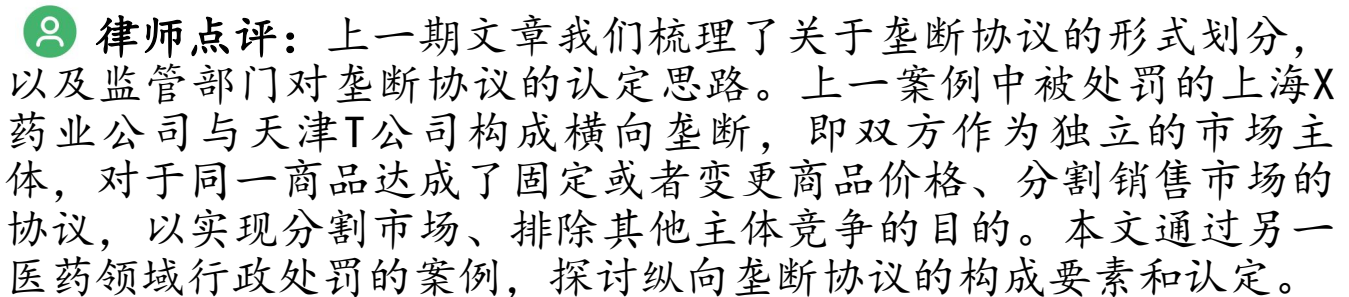 律师点评：上一期文章我们梳理了关于垄断协议的形式划分，
以及监管部门对垄断协议的认定思路。上一案例中被处罚的上海X
药业公司与天津T公司构成横向垄断，即双方作为独立的市场主
体，对于同一商品达成了固定或者变更商品价格、分割销售市场的
协议，以实现分割市场、排除其他主体竞争的目的。本文通过另一
医药领域行政处罚的案例，探讨纵向垄断协议的构成要素和认定。